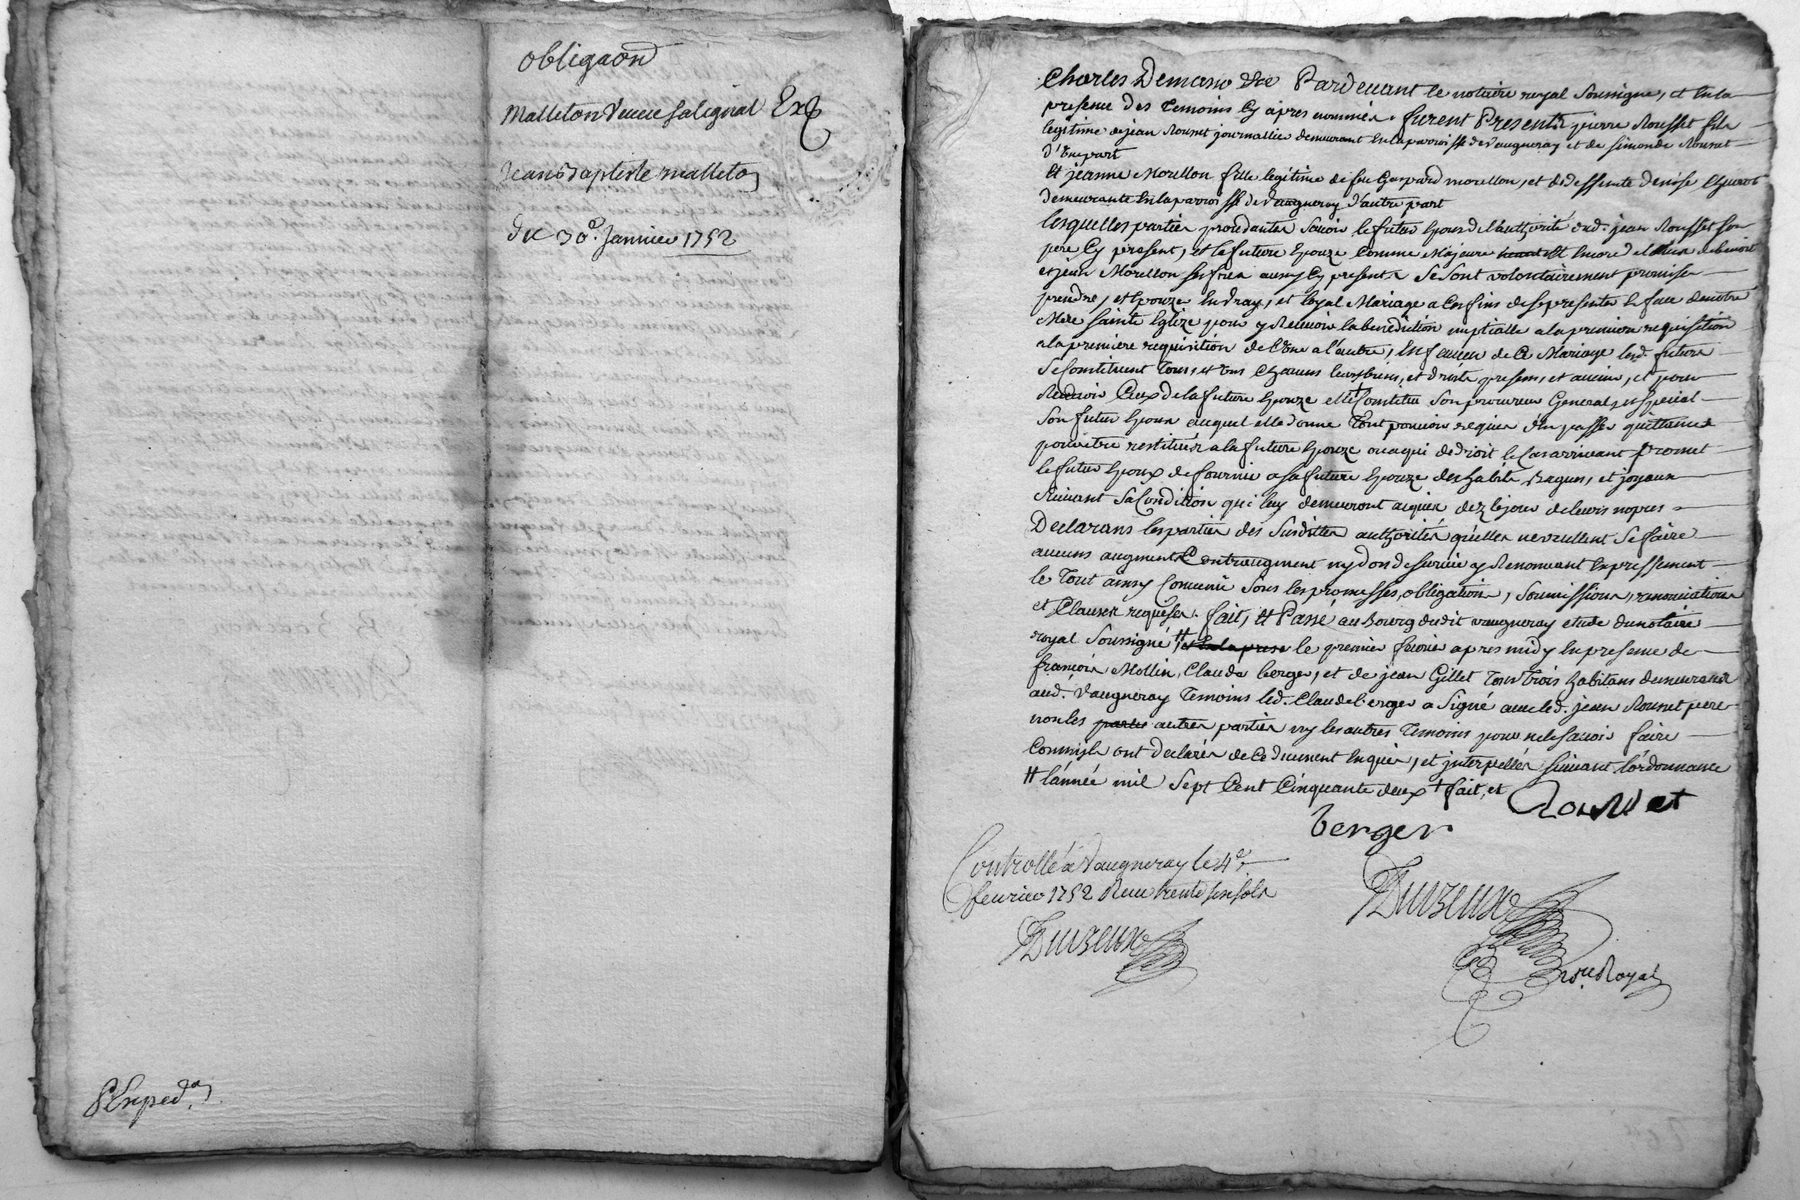 obligaon
Malleton veuve salignat Exp
Jean Baptiste malleton
du 30e. Janvier 1752
P Exped.on
Charles Demasso &ce Pardevant le notaire royal soussigné, et en la
presence des temoins cy apres nommés. furent Presents pierre Rousset fils
legitime de jean Rousset journallier demeurant en la paroisse de vaugneray et de simonde Rousset
d'une part
Et jeanne Morellon fille legitime de feu Gaspard morellon, et de deffunte denise
demeurante en la paroisse de vaugneray d'autre part
lesquelles parties procedantes savoir le futur epoux de l'authorité dud. jean Rousset son
pere cy present, et la future epouze comme majeure et encore de
et jean Morellon ses freres aussy cy presents se sont volontairement promises
prendre, et epouze en vray, et loyal Mariage a ces fins de se presenter en face de notre
Mere sainte Eglize pour y Recevoir la benediction nuptialle a la premiere requisition
a la premiere requisition de l'une a l'autre, en faveur de ce Mariage lesd. futurs
se constituent tous, et uns chacuns leurs biens, et droits presens, et avenir, et pour
Recevoir Ceux de la future epouze elle Constitue son procureur General, et special
son futur epoux auquel elle donne tout pouvoir requis d'en passer quittances
pour etre restitués a la future epouze ou a qui de droit le cas arrivant promet
le futur epoux de fournir a sa future epouze des habits, Bagues, et joyaux
suivant sa Condition qui luy demeuront acquis dez le jour de leurs nopces
Declarans les parties des susdittes authorités qu'elles ne veullent se faire
aucuns augment Contraugment ny don de survie y Renoncant expressement
le tout ainsy Convenu sous les promesses, obligations, soumissions, renonciations
et Clauses requises. fait, et Passé au bourg dudit vaugneray etude du notaire
royal soussigné # et en la prese le premier fevrier apres midy en presence de
francois Mollin, Claude berger, et de jean Gillet tous trois habitans demeurants
aud. vaugneray temoins led. Claude berger a signé avec led. jean Rousset pere
non les parties autres parties ny les autres temoins pour ne le savoir faire
comm'ils ont declarés de ce duement enquis, et interpellés suivant l'ordonnance
# l'année mil sept Cent Cinquante deux + fait, et
Rousset
berger
Controllé a vaugneray le 4e.
fevrier 1752 Recu trente six sols
Duvzeux
Duvzeux
nre. Royal